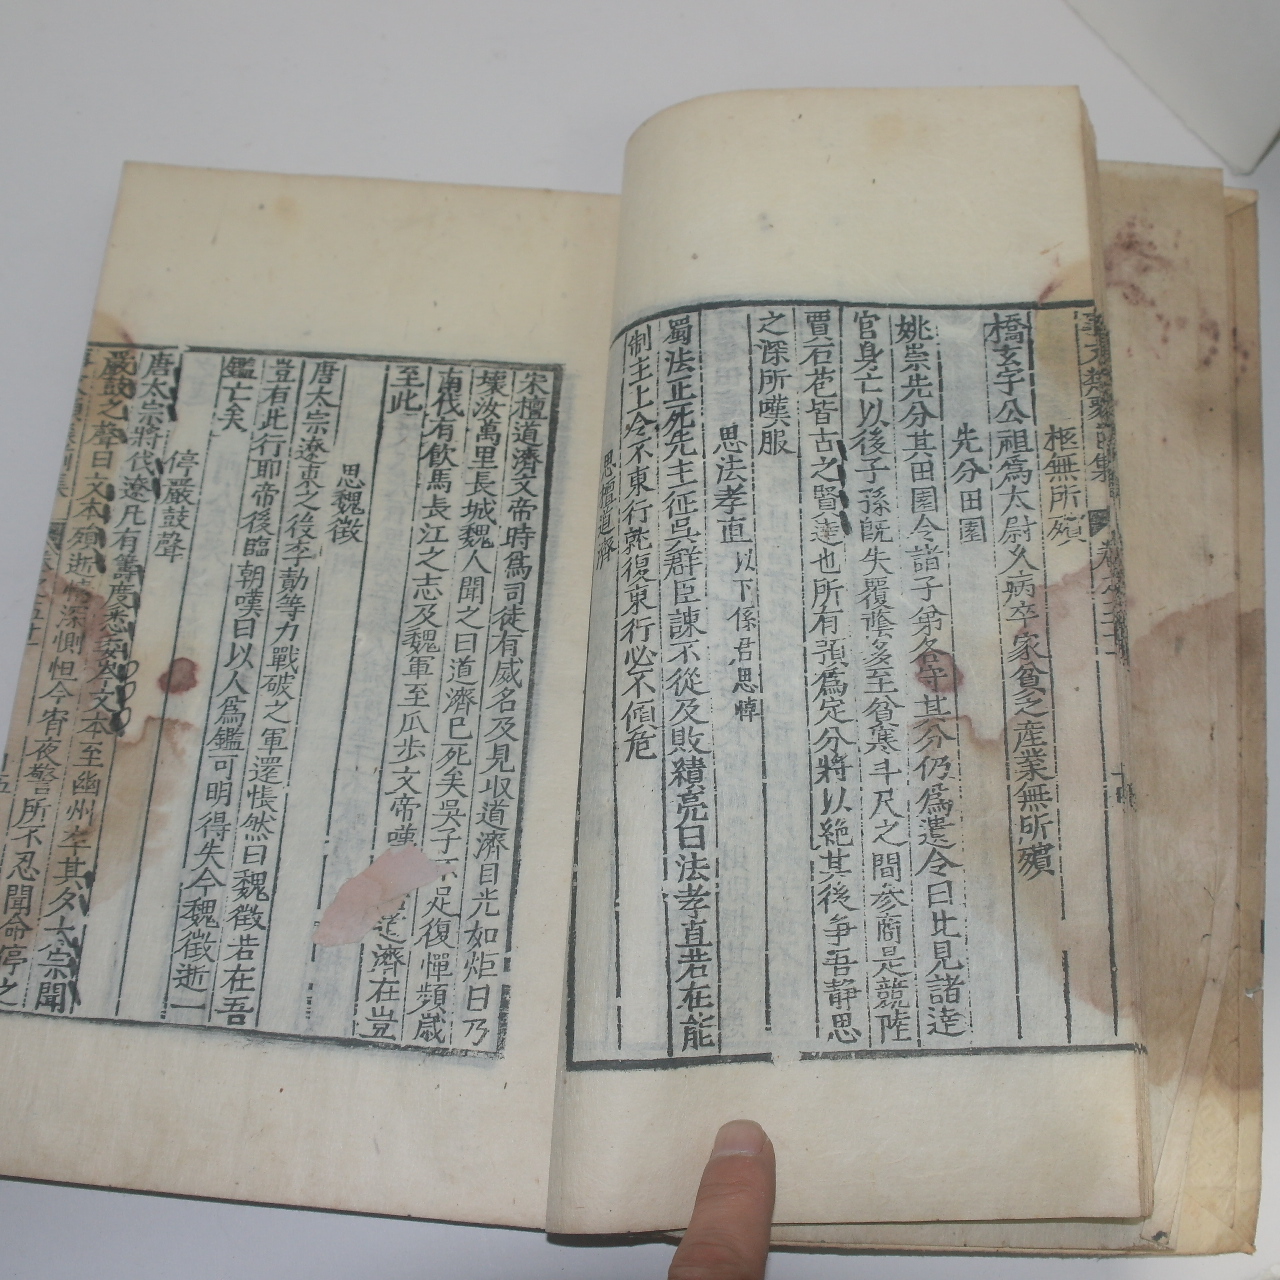 極無所殯
橋玄字公祖為太尉久病卒家貧乏産業無所殯
先分田園
姚崇先分其田園令諸子弟各守其分仍為遺令曰比見諸達
官身亡以後子孫旣失覆蔭多至貧寒斗尺之間參商是競陸
賈石苞皆古之賢達也所有預為定分將以絶其後爭吾靜思
之深所嘆服
思法孝直以下係君思悼
蜀法正死先主征吳群臣諫不從及敗績亮曰法孝直若在能
制主上令不東行就復東行必不傾危
思檀道濟
宋檀道濟文帝時為司徒有威名及見収道濟目光如炬曰乃
壞汝萬里長城魏人聞之曰道濟已死矣吳子不足復憚頻歲
南伐有飲馬長江之志及魏軍至瓜步文帝嘆道濟在豈
至此
思魏徵
唐太宗遼東之後李勣等力戰破之軍還悵然曰魏徵若在吾
豈有此行耶帝後臨朝嘆曰以人為鑑可明得失今魏徵逝一
鑑亡矣
停嚴鼓聲
唐太宗將伐遼凡有籌度悉委岑文本至幽州卒其夕太宗聞
嚴鼓之聲曰文本殞逝情深惻怛今宵夜警所不忍聞命停之